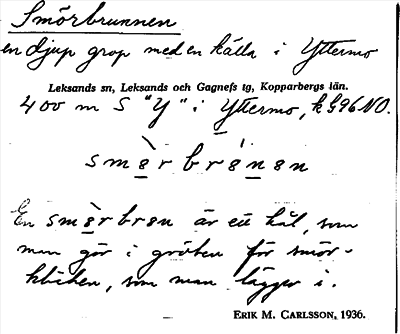 Smörbrunnen
en djup grop med en källa i Yttermo
Leksands sn, Leksands och Gagnefs tg, Kopparbergs län.
400 m S "Y" i Yttermo, k G96NO.
smə̀r brə́nən
En smə̀rbrən är ett hål, som
man gör i gröten för smör-
klicken, som man lägger i.
ERIK M. CARLSSON, 1936.